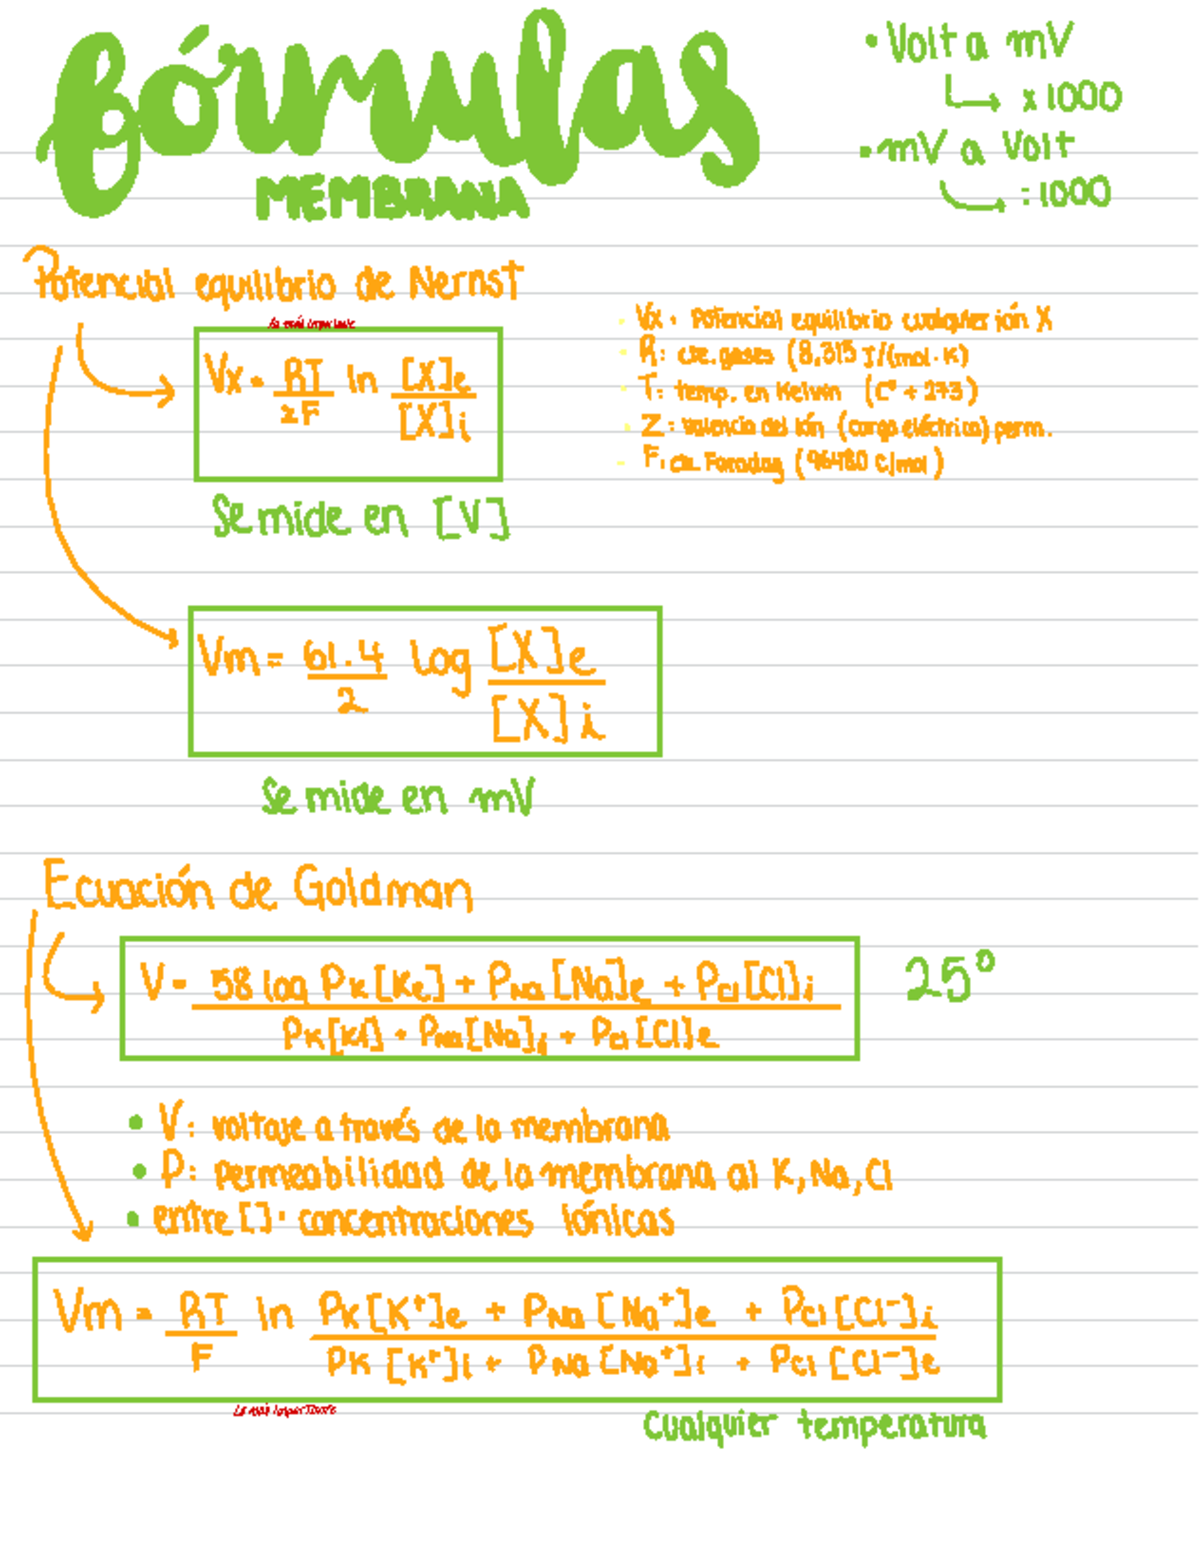 fórmulas
MEMBRANA
• Volt a mV
↳ x 1000
• mV a Volt
↳ : 1000
Potencial equilibrio de Nernst
La más importante
Vx = RT/zF ln [X]e/[X]i
Se mide en [V]
- Vx = Potencial equilibrio cualquier ión X
- R: cte. gases (8,315 J/(mol·K)
- T: temp. en Kelvin (C° + 273)
- Z: valencia del ión (carga eléctrica) perm.
- F: cte. Faraday (96480 C/mol)
Vm = 61.4/2 log [X]e/[X]i
Se mide en mV
Ecuación de Goldman
V = 58 log PK[Ke] + PNa[Na]e + PCl[Cl]i
PK[Ki] + PNa[Na]i + PCl[Cl]e
25°
• V: voltaje a través de la membrana
• P: permeabilidad de la membrana al K, Na, Cl
• entre []: concentraciones iónicas
Vm = RT/F ln PK[K⁺]e + PNa[Na⁺]e + PCl[Cl⁻]i
PK[K⁺]i + PNa[Na⁺]i + PCl[Cl⁻]e
La más importante
Cualquier temperatura